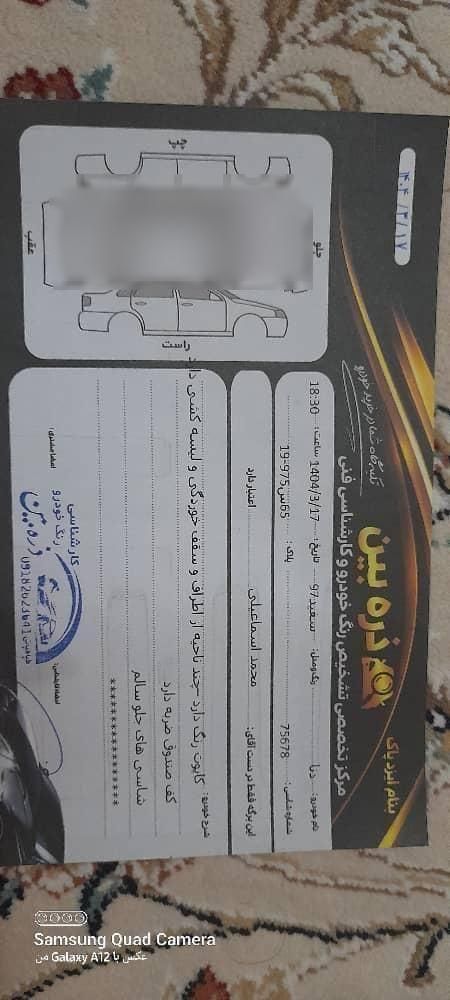 بنام ایزد پاک
ذره بین
مرکز تخصصی تشخیص رنگ خودرو و کارشناسی فنی
تکیه‌گاه شما در خرید خودرو
۱۴۰۴/۳/۱۷
نام خودرو: دنا رنگ/مدل: سفید 97 تاریخ: 1404/3/17 ساعت: 18:30
شماره شاسی: 75678 پلاک: 65س975-19
این برگه فقط در دست آقای: محمد اسماعیلی اعتبار دارد
شرح خودرو: کاپوت رنگ دارد -چند ناحیه از اطراف و سقف خوردگی و لیسه کشی دارد
کف صندوق ضربه دارد
شاسی های جلو سالم
******************
چپ
جلو
عقب
راست
امضا مشتری:
کارشناسی
رنگ خودرو
ذره بین
09182023641
Samsung Quad Camera
عکس با Galaxy A12 من